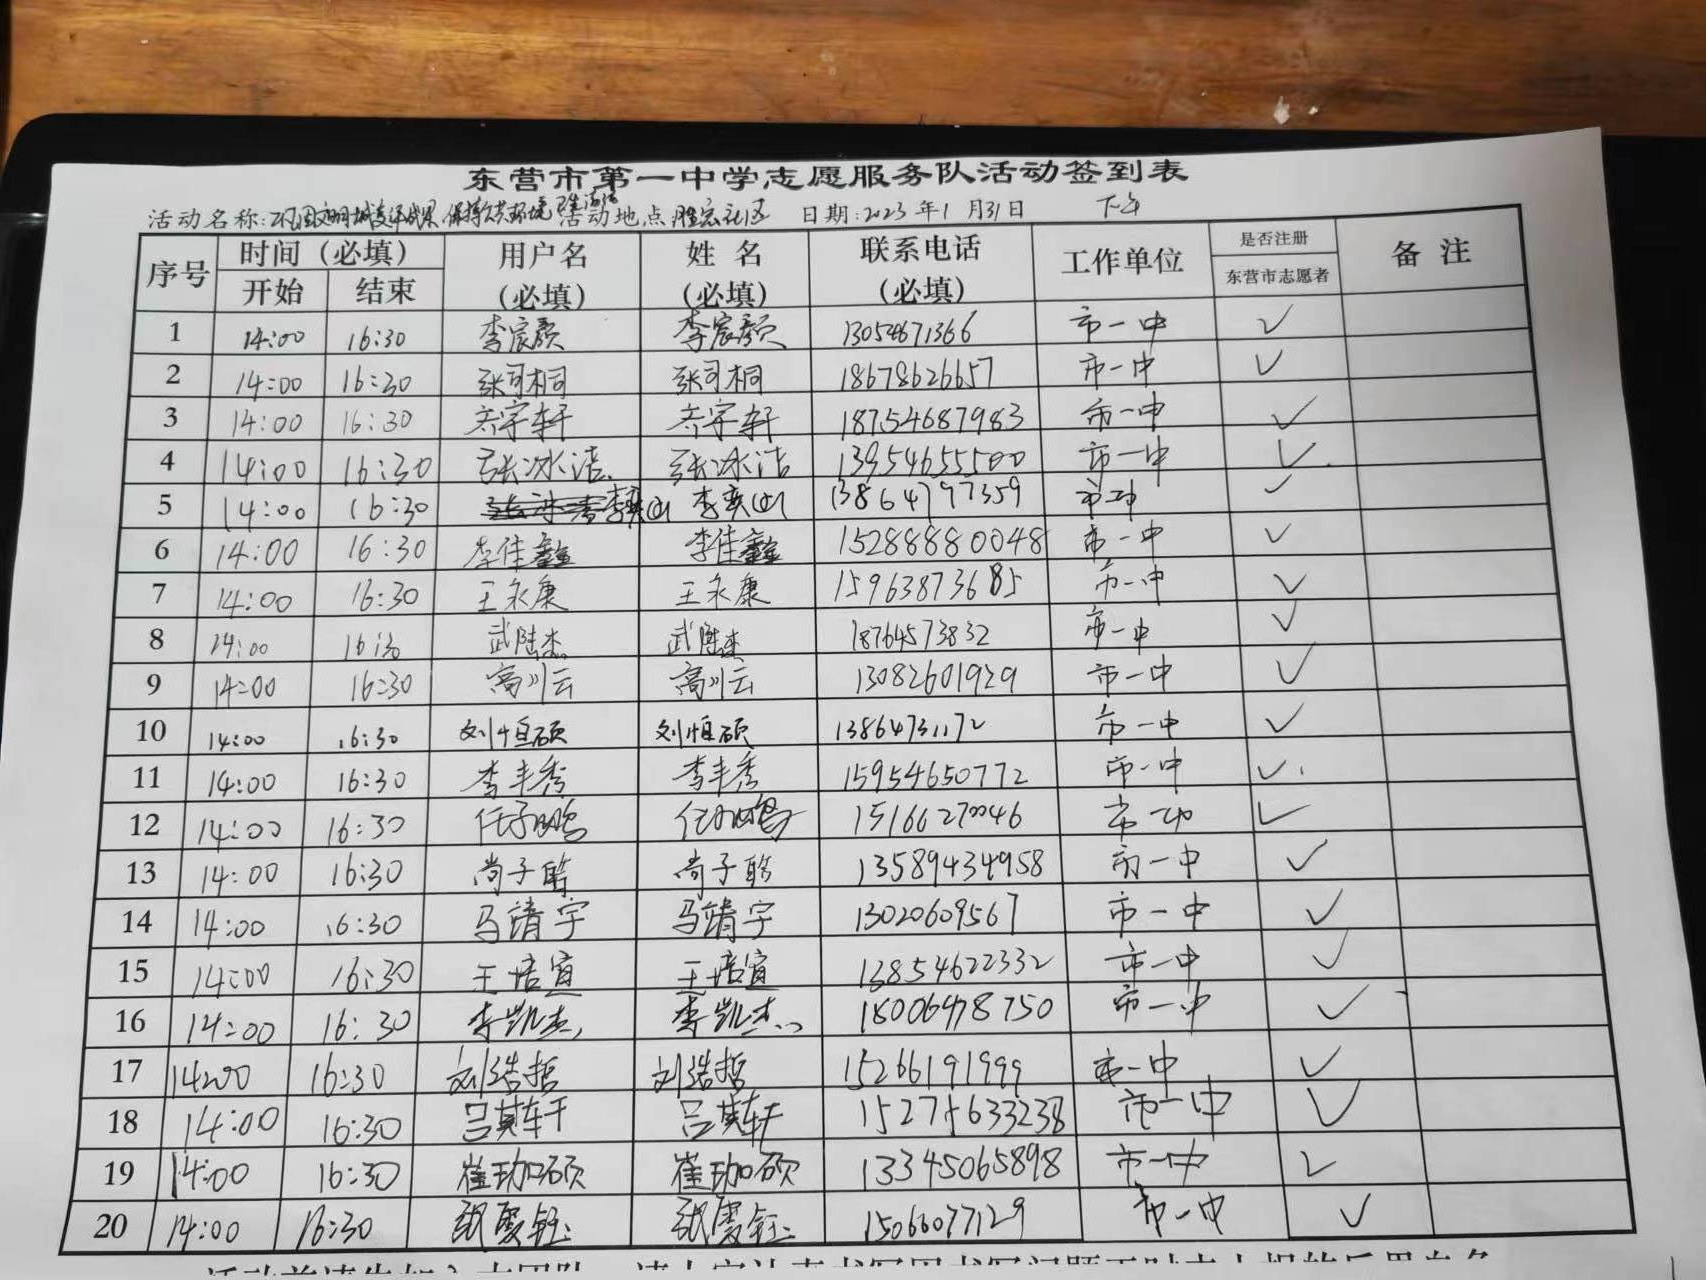 东营市第一中学志愿服务队活动签到表
活动名称:巩固文明城复评成果 保持公共环境卫生清洁 活动地点 胜宏社区 日期:2023年1月31日 下午
序号 时间（必填） 用户名（必填） 姓名（必填） 联系电话（必填） 工作单位 是否注册东营市志愿者 备注
开始 结束
1 14:00 16:30 李宸颜 李宸颜 13054671366 市一中 ✓
2 14:00 16:30 张可桐 张可桐 18678626657 市一中 ✓
3 14:00 16:30 齐宇轩 齐宇轩 18754687983 市一中 ✓
4 14:00 16:30 张冰洁 张冰洁 13954655500 市一中 ✓
5 14:00 16:30 李奕 李奕 13864797359 市一中 ✓
6 14:00 16:30 李佳鑫 李佳鑫 15288880048 市一中 ✓
7 14:00 16:30 王永康 王永康 15963873685 市一中 ✓
8 14:00 16:30 武陆杰 武陆杰 18764573832 市一中 ✓
9 14:00 16:30 高川云 高川云 13082601929 市一中 ✓
10 14:00 16:30 刘恒硕 刘恒硕 13864731172 市一中 ✓
11 14:00 16:30 李丰秀 李丰秀 15954650772 市一中 ✓
12 14:00 16:30 任子鹏 任子鹏 15166270046 市一中 ✓
13 14:00 16:30 尚子皓 尚子皓 13589434958 市一中 ✓
14 14:00 16:30 马靖宇 马靖宇 13020609567 市一中 ✓
15 14:00 16:30 王培宣 王培宣 13854622332 市一中 ✓
16 14:00 16:30 李凯杰 李凯杰 18006478750 市一中 ✓
17 14:00 16:30 刘浩哲 刘浩哲 15266191999 市一中 ✓
18 14:00 16:30 吕其轩 吕其轩 市一中 ✓
19 14:00 16:30 崔珈硕 崔珈硕 13345065898 市一中 ✓
20 14:00 16:30 15066077129 市一中 ✓